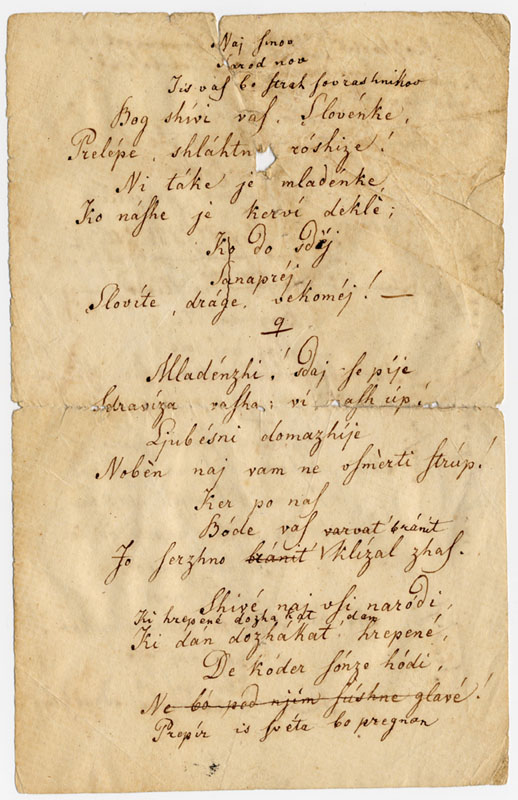 Naj sinov
Narod nov
Jis vas bo strah sovrashnikov
Bog shívi vas, Slovénke,
Prelépe, shláhtn róshize!
Ni táke je mladénke,
Ko náshe je kerví deklè;
Ko do sdéj
Sanapréj
Slovíte, dráge, vekoméj! —
9
Mladénzhi! sdaj se píje
Sdravíza vasha; ví ash úp!
Ljubésni domazhíje
Nobèn naj vam ne osmèrti strúp!
Ker po nas
Bóde vas varvat' bránit
Jo serzhno bránit' klízal zhas.
Shivé naj vsi naródi,
Ki hrepené dozhakat' dan
Ki dán dozhákat' hrepené,
De kóder sónze hódi,
Ne bó pod njím súshne glavé!
Prepír is svéta bo pregnan